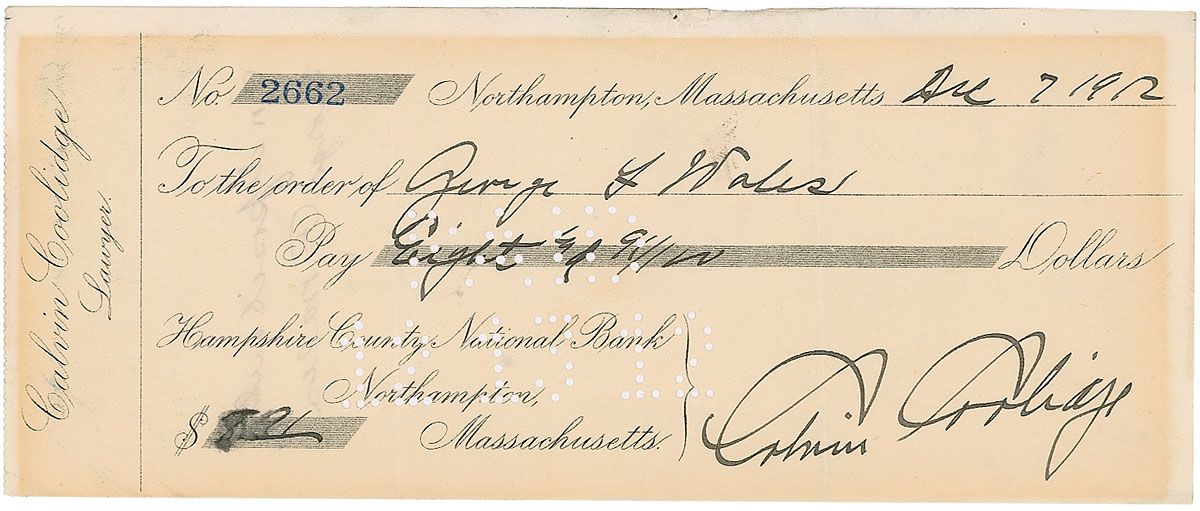 Calvin Coolidge
Lawyer.
No. 2662 Northampton, Massachusetts Dec 7 1912
To the order of George L Wales
Pay Eight & 91/100 Dollars
Hampshire County National Bank
Northampton,
Massachusetts.
$ 8.91
Calvin Coolidge